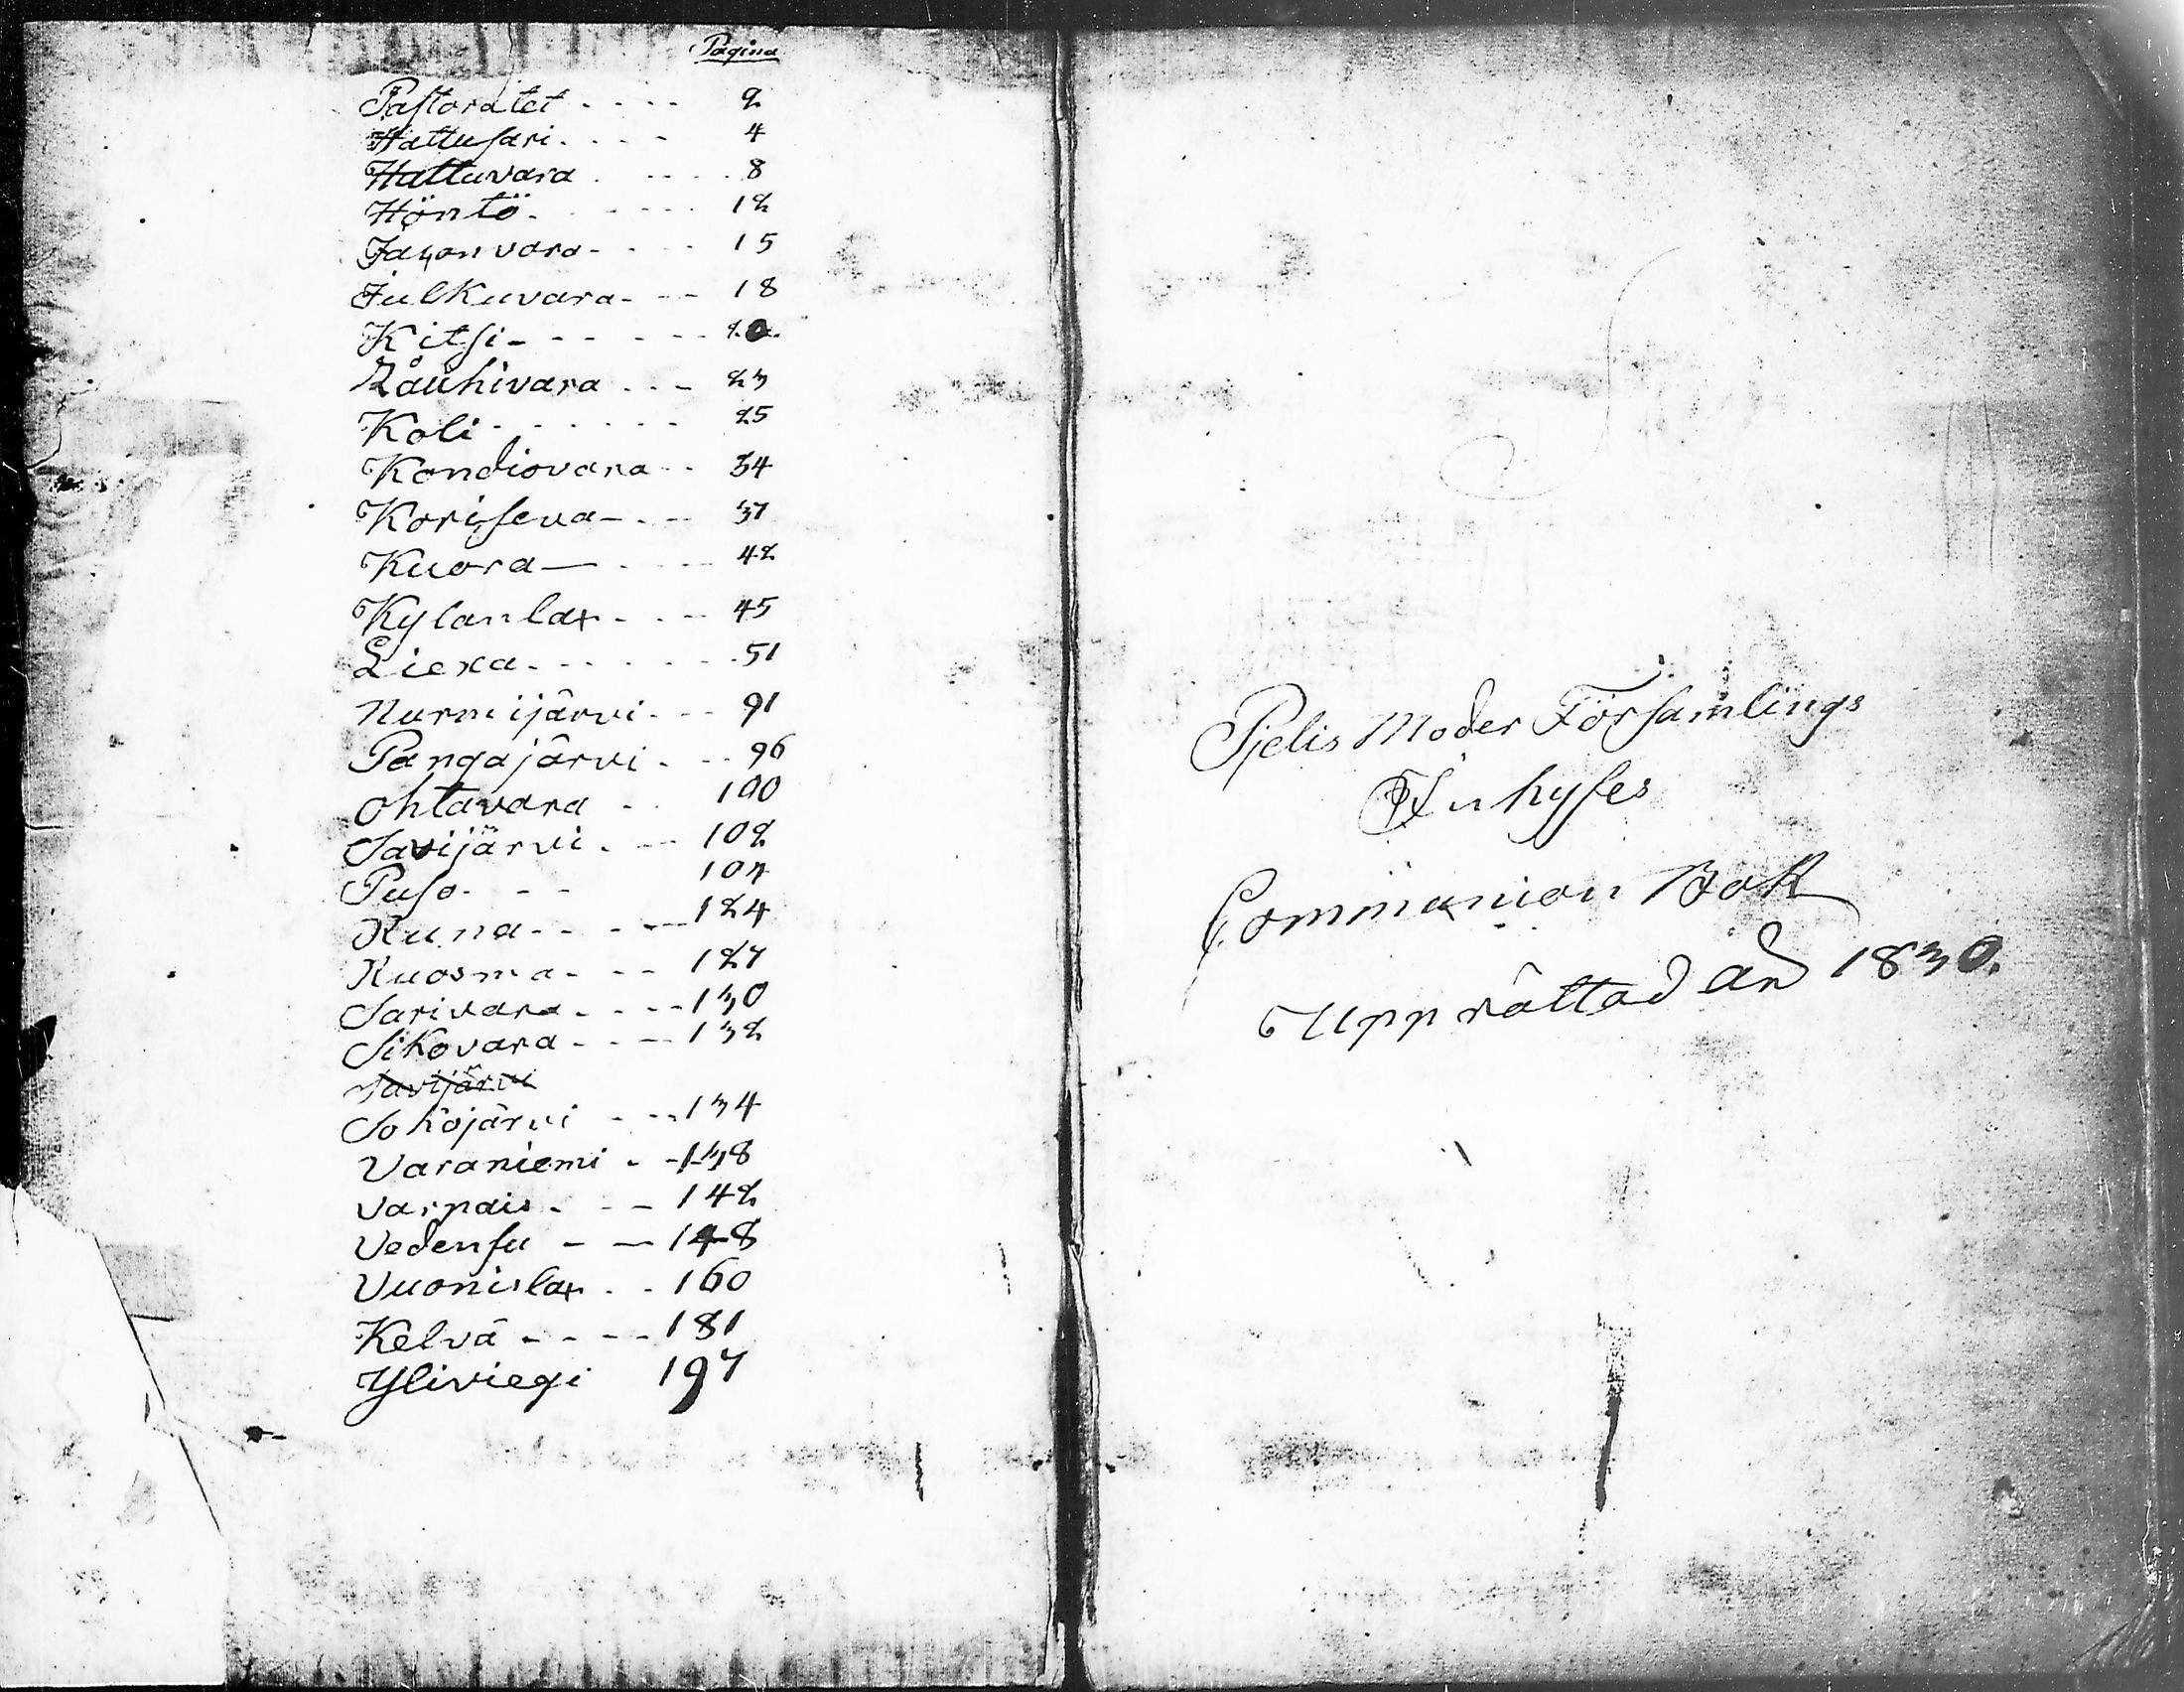 Pagina
Pastoratet - - - - 2
Hattusari - - - - 4
Hattuvara - - - - 8
Höntö - - - - 12
Jauhonvara - - - - 15
Julkuvara - - - 18
Kitsi - - - - - 20
Låuhivara - - - 23
Koli - - - - - - 25
Kondiovara - - 34
Koriseva - - - 37
Kuora - - - - 42
Kylanlax - - - 45
Liexa - - - - - - 51
Nurmijärvi - - - 91
Pangajärvi - - - 96
Ohtavara - - 100
Savijärvi - - 102
Puso - - - 104
Runa - - - - 124
Ruosma - - - 127
Sarivara - - - - 130
Sikovara - - - 132
Savijärvi
Sokojärvi - - - 134
Varaniemi - - 138
Varpais - - - 142
Vedensu - - 148
Vuonislax - - 160
Kelvä - - - - 181
Yliviegi 197
Pjelis Moder Församlings
Inhyses
Communion Bok
Upprättad år 1830.